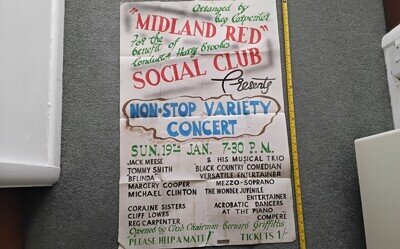 Arranged by
Reg Carpenter
"MIDLAND RED"
For the
benefit of
Conductor Harry Brookes
SOCIAL CLUB
Presents
NON-STOP VARIETY
CONCERT
SUN. 19TH JAN. 7-30 P.M.
JACK MEESE & HIS MUSICAL TRIO
TOMMY SMITH BLACK COUNTRY COMEDIAN
BELINDA VERSATILE ENTERTAINER
MARGERY COOPER MEZZO-SOPRANO
MICHAEL CLINTON THE WONDER JUVENILE
ENTERTAINER
CORAINE SISTERS ACROBATIC DANCERS
CLIFF LOWES AT THE PIANO
REG CARPENTER COMPERE
Opened by Club Chairman Bernard Griffiths
PLEASE HELP A MATE! TICKETS 1/-